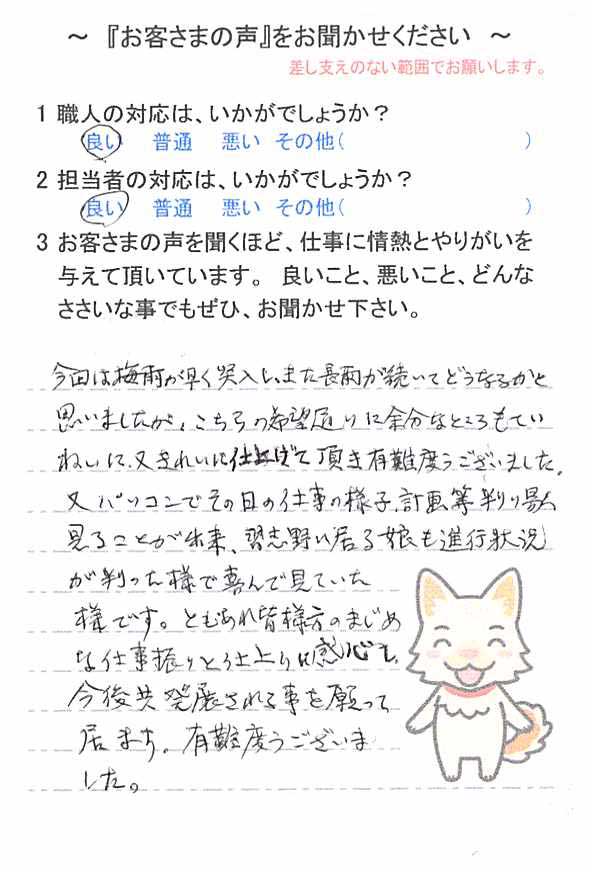 ～ 『お客さまの声』をお聞かせください ～
差し支えのない範囲でお願いします。
1 職人の対応は、いかがでしょうか？
良い 普通 悪い その他( )
2 担当者の対応は、いかがでしょうか？
良い 普通 悪い その他( )
3 お客さまの声を聞くほど、仕事に情熱とやりがいを
与えて頂いています。 良いこと、悪いこと、どんな
ささいな事でもぜひ、お聞かせ下さい。
今回は梅雨が早く突入し、また長雨が続いてどうなるかと
思いましたが、こちらの希望通りに余分なところもてい
ねいに、又きれいに仕上げて頂き有難度うございました。
又パソコンでその日の仕事の様子、計画等判り易く
見ることが出来、習志野に居る娘も進行状況
が判った様で喜んで見ていた
様です。ともあれ皆様方のまじめ
な仕事振りと仕上りに感心し、
今後共発展される事を願って
居ます。有難度うございま
した。